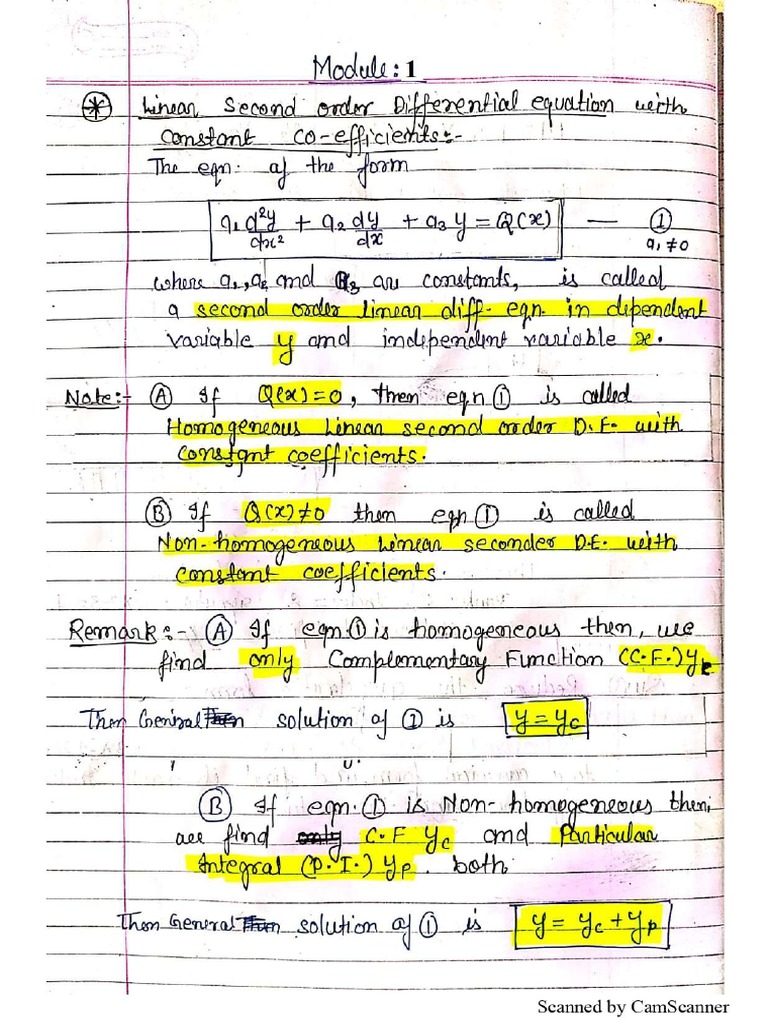 Module: 1
* Linear Second order Differential equation with
constant co-efficients:-
The eqn. of the form
a₁ d²y/dx² + a₂ dy/dx + a₃ y = Q(x) — ①
a₁ ≠ 0
where a₁, a₂ and a₃ are constants, is called
a second order linear diff. eqn. in dependent
variable y and independent variable x.
Note:- Ⓐ If Q(x)=0, then eqn ① is called
Homogeneous Linear second order D.E. with
constant coefficients.
Ⓑ If Q(x)≠0 then eqn ① is called
Non-homogeneous Linear seconder D.E. with
constant coefficients.
Remark:- Ⓐ If eqn. ① is homogeneous then, we
find only Complementary Function (C.F.) yc
Then General solution of ① is y = yc
Ⓑ If eqn. ① is Non-homogeneous then,
we find only C.F yc and Particular
Integral (P.I.) yp. both
Then General solution of ① is y = yc + yp
Scanned by CamScanner